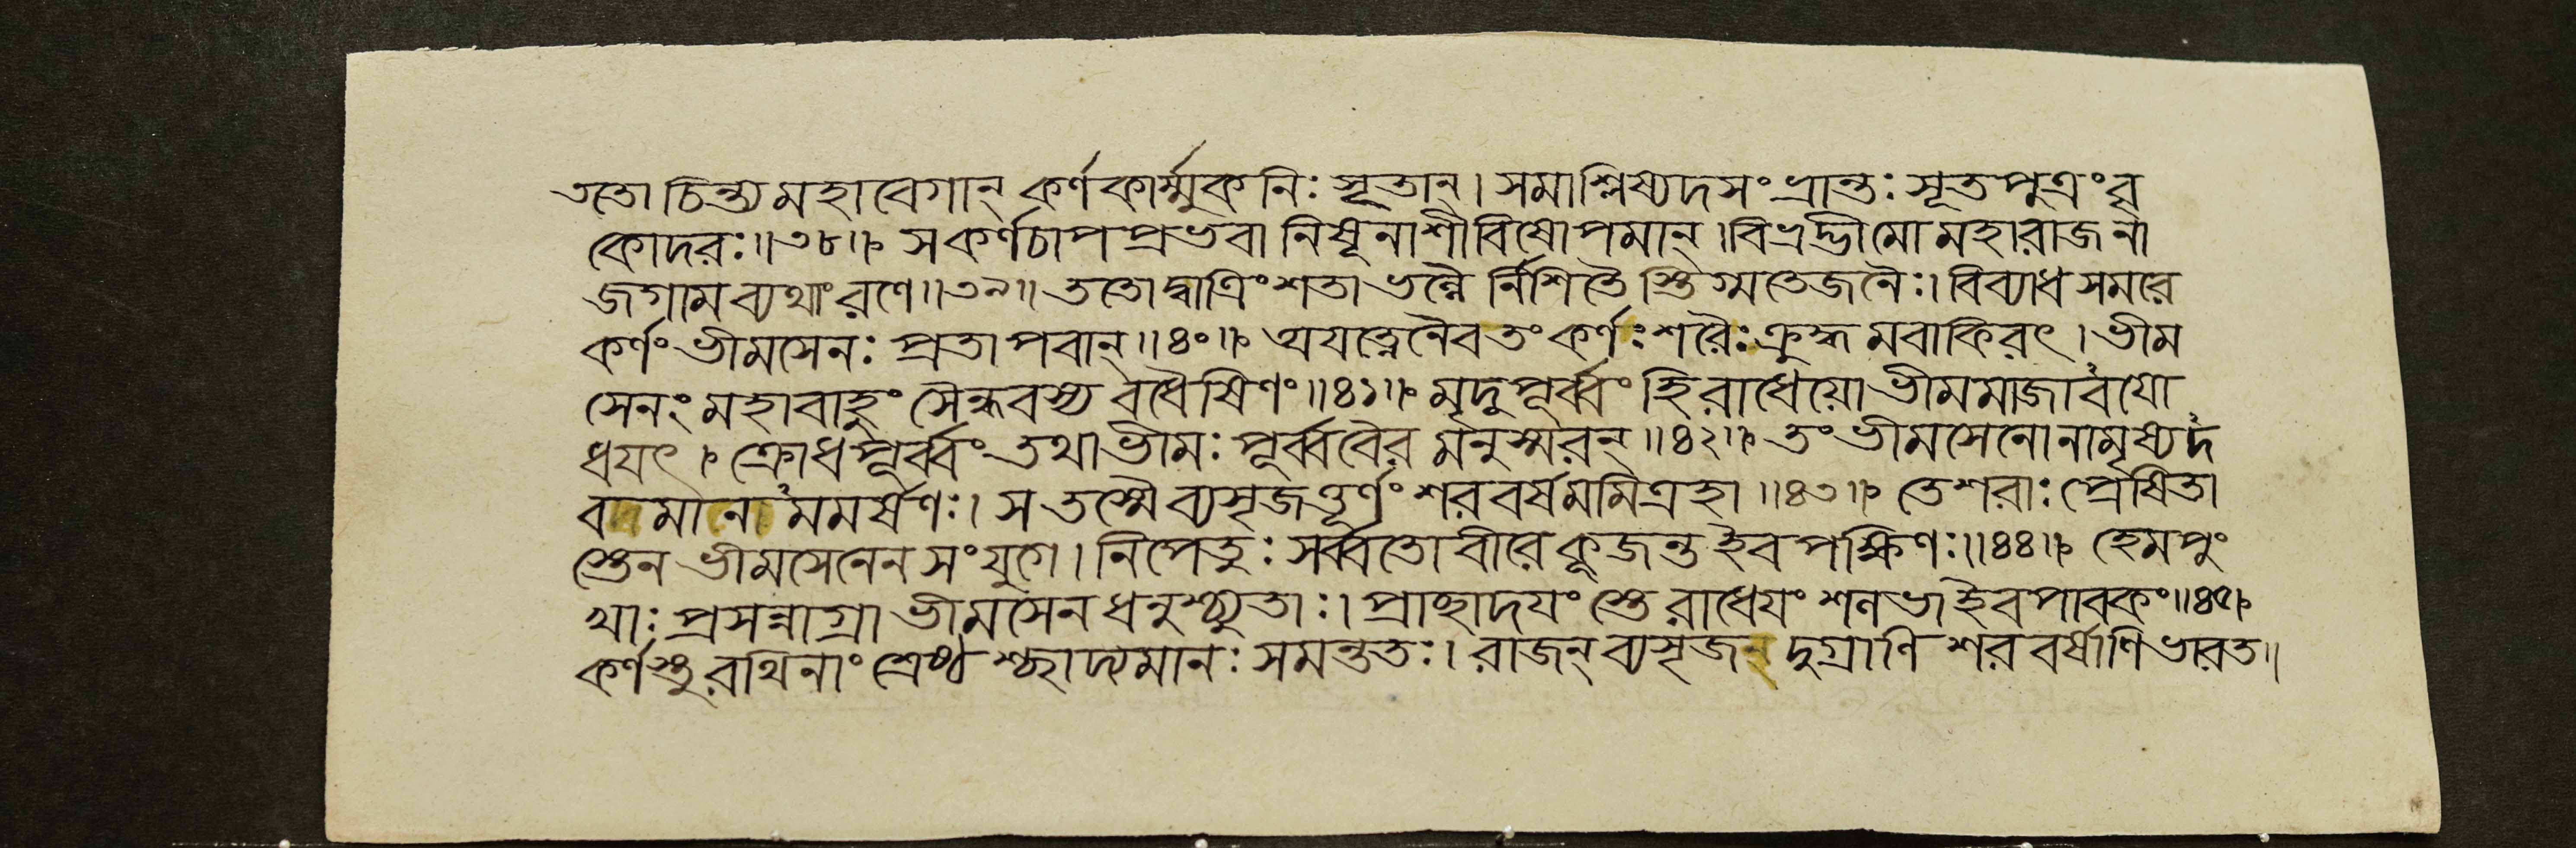 ততো চিন্ত্য মহাবেগান্ কর্ণকার্ম্মুকনিঃ সূতান্। সমাশ্লিষ্যদসংভ্রান্তঃ সূতপুত্রংবৃ
কোদরঃ॥৩৮॥ সকর্ণচাপপ্রভবানিষূনাশীবিষোপমান্। বিভ্রদ্ভীমো মহারাজনা
জগামব্যথাংরণে॥৩৯॥ ততোদ্বাত্রিংশতাভল্লৈর্নিশিতৈস্তিগ্মতেজনৈঃ। বিব্যাধসমরে
কর্ণং ভীমসেনঃ প্রতাপবান্॥৪০॥ অযত্নেনৈবতংকর্ণঃ শরৈঃ ক্রুদ্ধমবাকিরৎ। ভীম
সেনং মহাবাহুং সৈন্ধবস্য বধৈষিণং॥৪১॥ মৃদুপূর্ব্বং হিরাধেয়ো ভীমমাজাবযো
ধযৎ। ক্রোধপূর্ব্বং তথাভীমঃ পূর্ব্ববৈরমনুস্মরন্॥৪২॥ তং ভীমসেনোনামৃষ্যদ
বমানমমর্ষণঃ। সতস্মৈ ব্যসৃজত্তূর্ণং শরবর্ষমমিত্রহা॥৪৩॥ তেশরাঃ প্রেষিতা
স্তেন ভীমসেনেন সংযুগে। নিপেতুঃ সর্ব্বতোবীরেকূজন্তইবপক্ষিণঃ॥৪৪॥ হেমপুং
খাঃ প্রসন্নাগ্রা ভীমসেনধনুশ্চ্যুতাঃ। প্রাচ্ছাদযং স্তেরাধেযং শলভাইবপাবকং॥৪৫
কর্ণস্তুরথিনাং শ্রেষ্ঠশ্ছাদ্যমানঃ সমন্ততঃ। রাজন্ ব্যসৃজদুগ্রাণি শরবর্ষাণিভারত॥